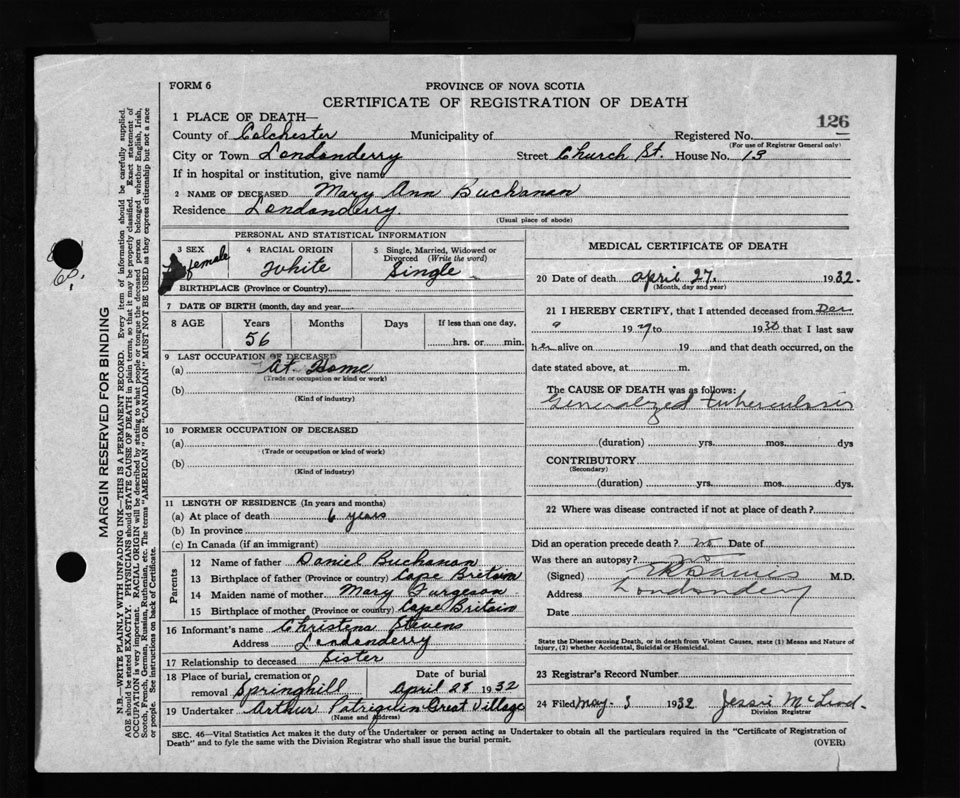 FORM 6
PROVINCE OF NOVA SCOTIA
CERTIFICATE OF REGISTRATION OF DEATH
126
1 PLACE OF DEATH—
County of Colchester Municipality of Registered No.
(For use of Registrar General only)
City or Town Londonderry Street Church St. House No. 13
If in hospital or institution, give name
2 NAME OF DECEASED Mary Ann Buchanan
Residence Londonderry.
(Usual place of abode)
PERSONAL AND STATISTICAL INFORMATION
3 SEX female
4 RACIAL ORIGIN White
5 Single, Married, Widowed or Divorced (Write the word) Single
BIRTHPLACE (Province or Country)
7 DATE OF BIRTH (month, day and year
8 AGE Years Months Days If less than one day,
56 hrs. or min.
9 LAST OCCUPATION OF DECEASED
(a) At Home
(Trade or occupation or kind or work)
(b)
(Kind of industry)
10 FORMER OCCUPATION OF DECEASED
(a)
(Trade or occupation or kind of work)
(b)
(Kind of industry)
11 LENGTH OF RESIDENCE (In years and months)
(a) At place of death 6 years
(b) In province
(c) In Canada (if an immigrant)
Parents
12 Name of father Daniel Buchanan
13 Birthplace of father (Province or country) Cape Britain
14 Maiden name of mother Mary Furgeson
15 Birthplace of mother (Province or country) Cape Britain
16 Informant's name Christena Stevens
Address Londonderry
17 Relationship to deceased Sister
18 Place of burial, cremation or removal Springhill
Date of burial April 28 1932
19 Undertaker Arthur Great Village
(Name and address)
MEDICAL CERTIFICATE OF DEATH
20 Date of death April 27. 1932.
(Month, day and year)
21 I HEREBY CERTIFY, that I attended deceased from Dec
9 19 to 1930 that I last saw
her alive on 19 and that death occurred, on the
date stated above, at m.
The CAUSE OF DEATH was as follows:
Generalized tuberculosis
(duration) yrs. mos. dys
CONTRIBUTORY
(Secondary)
(duration) yrs. mos. dys
22 Where was disease contracted if not at place of death?
Did an operation precede death? no Date of
Was there an autopsy? no
(Signed) Davis M.D.
Address Londonderry
Date
State the Disease causing Death, or in death from Violent Causes, state (1) Means and Nature of
Injury, (2) whether Accidental, Suicidal or Homicidal.
23 Registrar's Record Number
24 Filed May 3 1932 Jessie McLeod.
Division Registrar
SEC. 46—Vital Statistics Act makes it the duty of the Undertaker or person acting as Undertaker to obtain all the particulars required in the "Certificate of Registration of
Death" and to fyle the same with the Division Registrar who shall issue the burial permit.
(OVER)
MARGIN RESERVED FOR BINDING
N.B.—WRITE PLAINLY WITH UNFADING INK—THIS IS A PERMANENT RECORD. Every item of information should be carefully supplied.
AGE should be stated EXACTLY. PHYSICIANS should STATE CAUSE OF DEATH in plain terms, so that it may be properly classified. Exact statement of
OCCUPATION is very important. RACIAL ORIGIN will be described by stating to what people or tongue the deceased person belonged whether English, Irish,
Scotch, French, German, Russian, Ruthenian, etc. The terms "AMERICAN" OR "CANADIAN" MUST NOT BE USED as they express citizenship but not a race
or people. See instructions on back of Certificate.